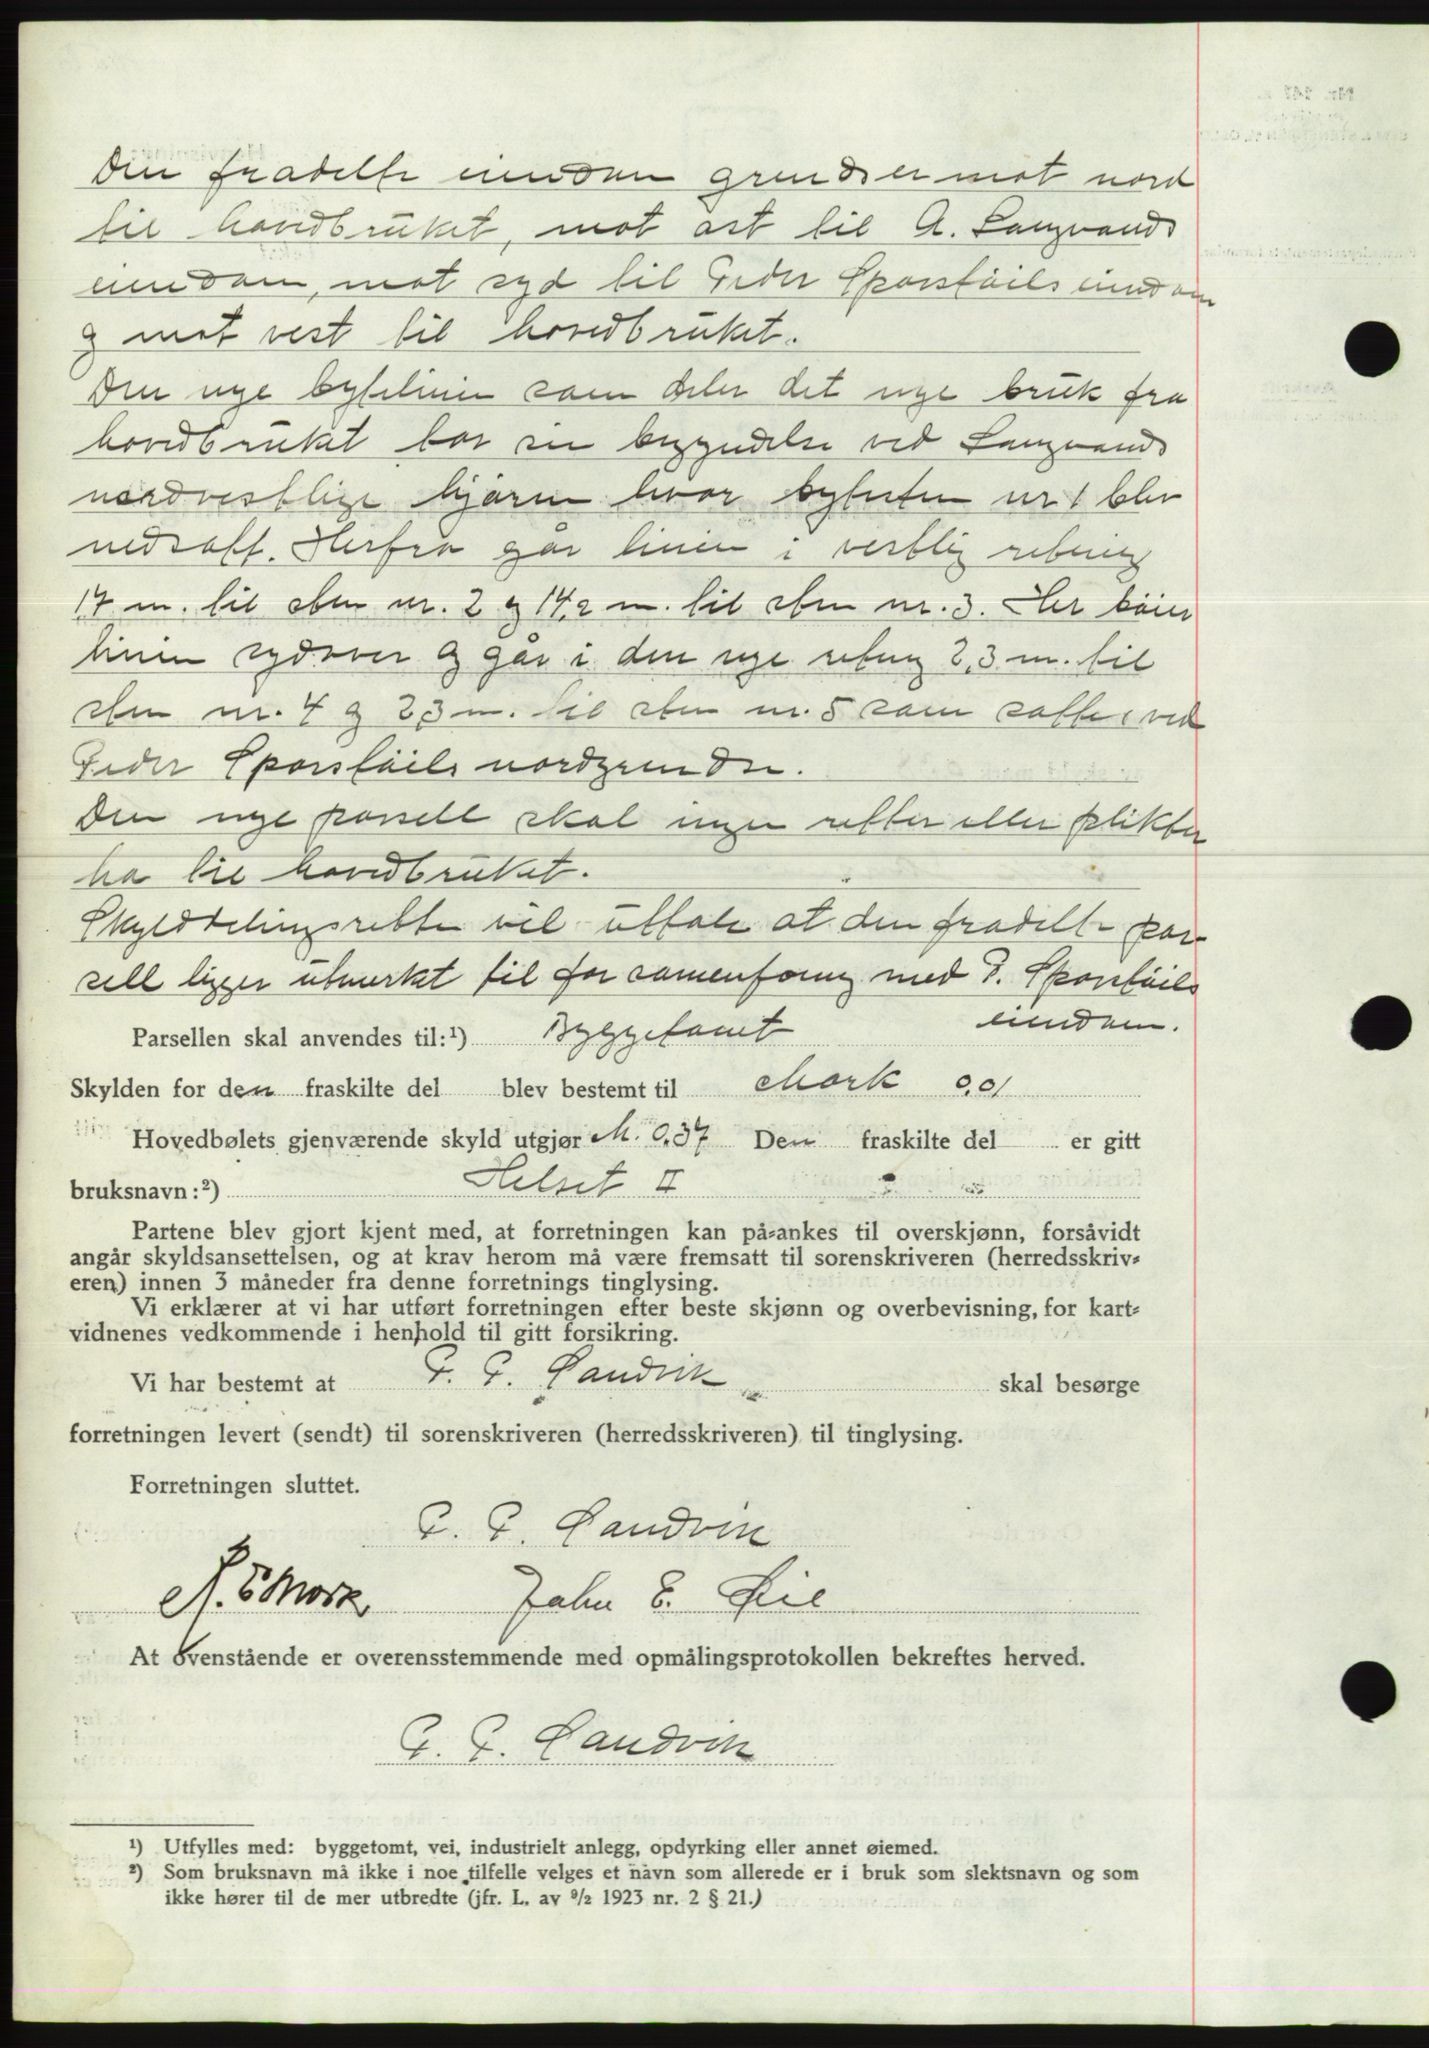 Den fradelte eiendom grendser mot nord
til hovedbruket, mot øst til A. Langvands
eiendom, mot syd til Peder Sporsføils eiendom
og mot vest til hovedbruket.
Den nye bytelinien som deler det nye bruk fra
hovedbruket tar sin begyndelse ved Langvands
nordvestlige hjørne hvor bytesten nr 1 blev
nedsatt. Herfra går linien i vestlig retning
17 m. til sten nr. 2 og 14,2 m. til sten nr. 3. Her bøier
linien sydover og går i den nye retning 2,3 m. til
sten nr. 4 og 23 m. til sten nr. 5 som sattes ved
Peder Sporsføils nordgrendse.
Den nye parsell skal ingen retter eller plikter
ha til hovedbruket.
Skylddelingsretten vil uttale at den fradelte par-
sell ligger utmerket til for samenføing med P. Sporsføils
eiendom.
Parsellen skal anvendes til:¹) Byggetomt
Skylden for den fraskilte del blev bestemt til Mark 0,01
Hovedbølets gjenværende skyld utgjør M. 0,37 Den fraskilte del er gitt
bruksnavn:²) Helset II
Partene blev gjort kjent med, at forretningen kan på-ankes til overskjønn, forsåvidt
angår skyldsansettelsen, og at krav herom må være fremsatt til sorenskriveren (herredsskriv-
eren) innen 3 måneder fra denne forretnings tinglysing.
Vi erklærer at vi har utført forretningen efter beste skjønn og overbevisning, for kart-
vidnenes vedkommende i henhold til gitt forsikring.
Vi har bestemt at P. P. Sandvik skal besørge
forretningen levert (sendt) til sorenskriveren (herredsskriveren) til tinglysing.
Forretningen sluttet.
P. P. Sandvik
N. E Mork John E. Øie
At ovenstående er overensstemmende med opmålingsprotokollen bekreftes herved.
P. P. Sandvik
¹) Utfylles med: byggetomt, vei, industrielt anlegg, opdyrking eller annet øiemed.
²) Som bruksnavn må ikke i noe tilfelle velges et navn som allerede er i bruk som slektsnavn og som
ikke hører til de mer utbredte (jfr. L. av ⁹/₂ 1923 nr. 2 § 21.)